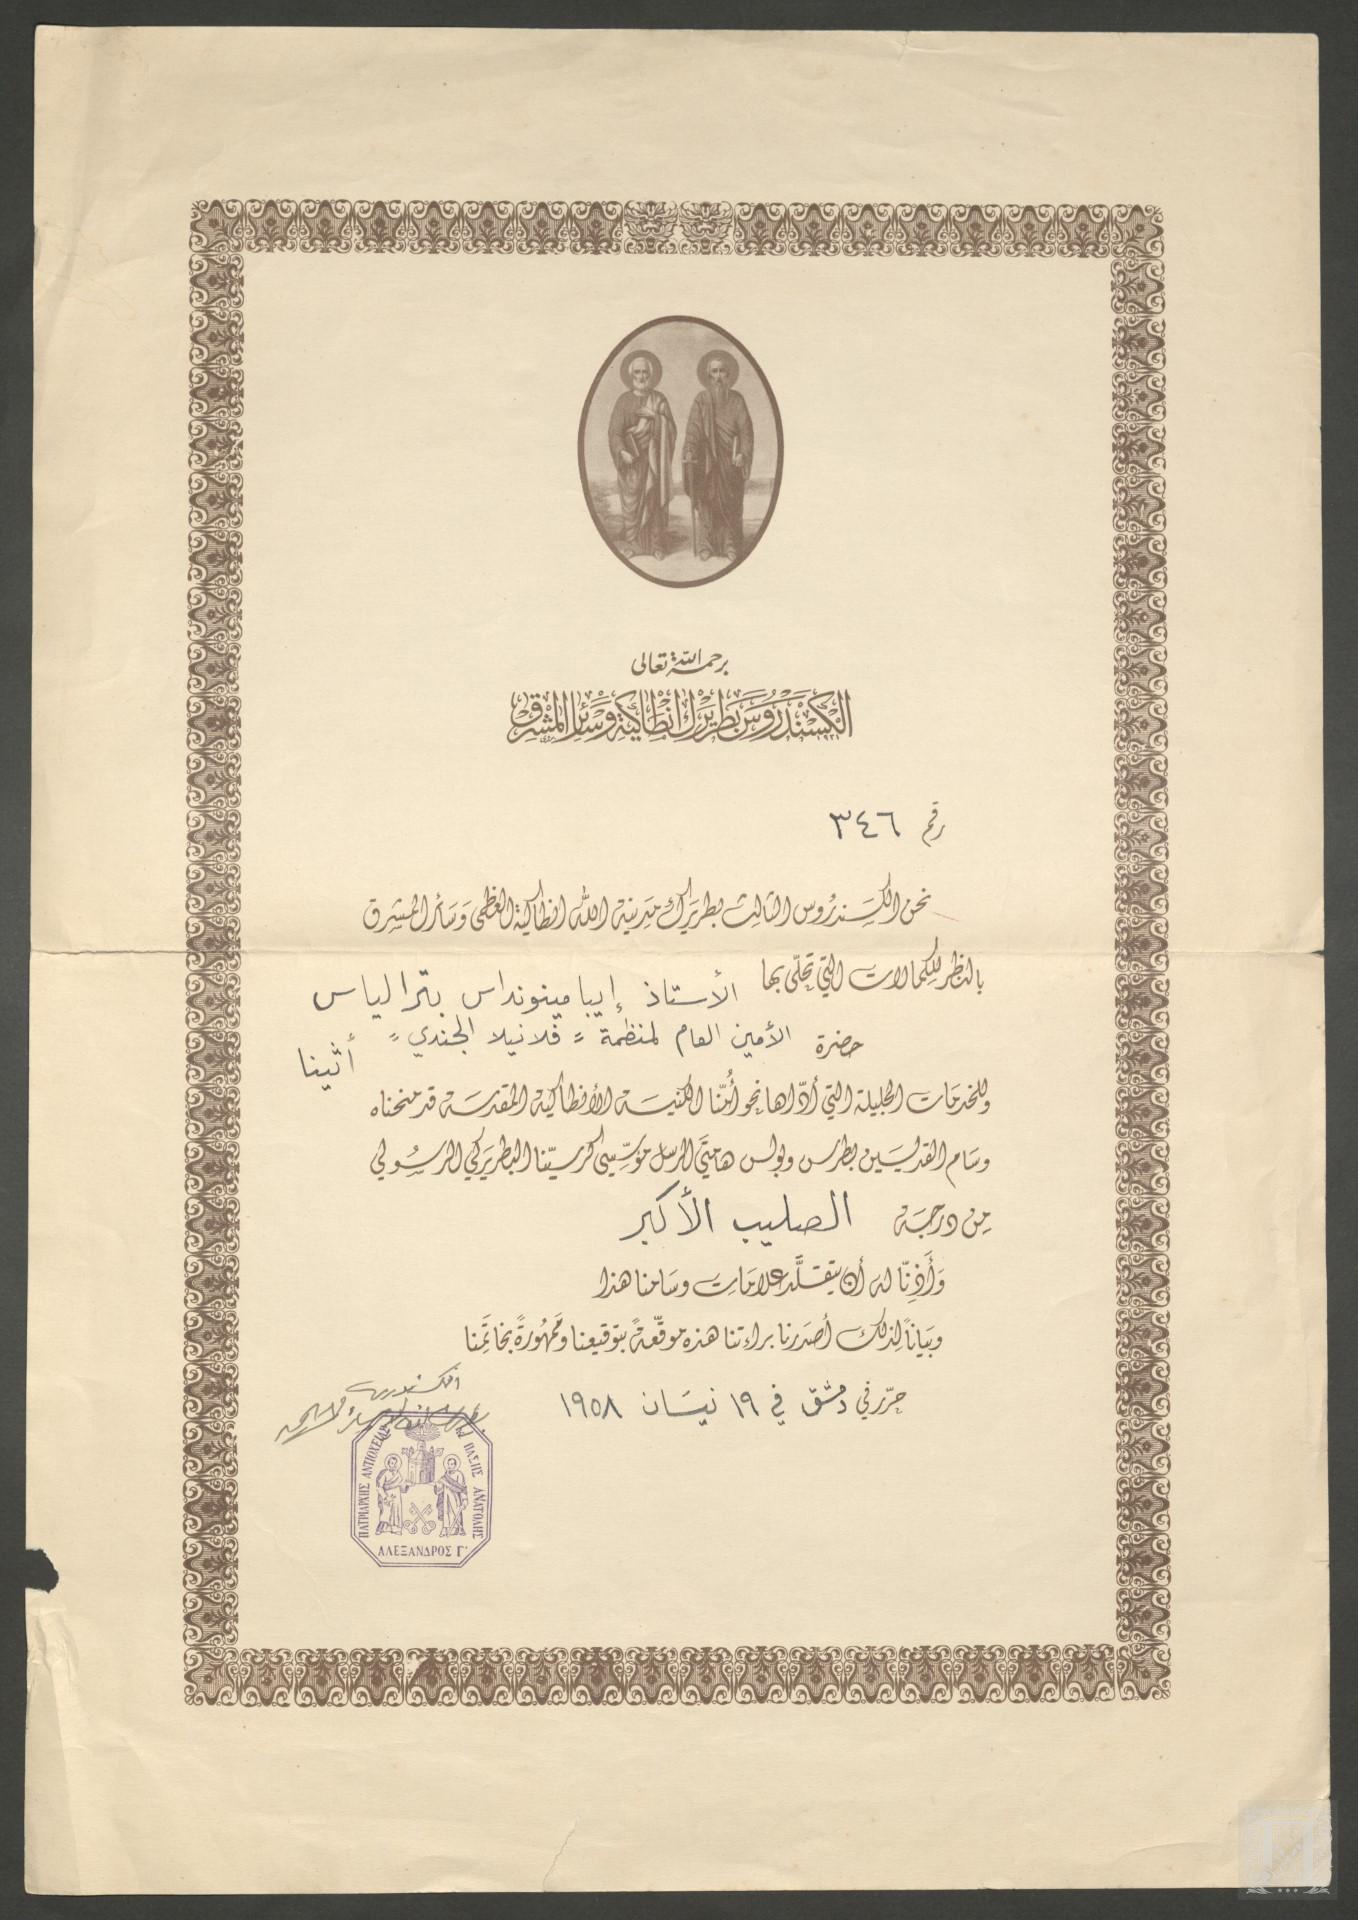 برحمة الله تعالى
الكسندروس بطريرك انطاكية وسائر المشرق
رقم ٣٤٦
نحن الكسندروس الثالث بطريرك مدينة الله انطاكية العظمى وسائر المشرق
بالنظر للكمالات التي تحلّى بها الأستاذ إيبامينونداس بترالياس
حضرة الأمين العام لمنظمة "فلانيلا الجندي" أثينا
وللخدمات الجليلة التي أدّاها نحو أُمّنا الكنيسة الأنطاكية المقدسة قد منحناه
وسام القديسين بطرس وبولس هامتَي الرسل مؤسِّسَي كرسيّنا البطريركي الرسولي
من درجة الصليب الأكبر
وَأَذِنّا له أن يتقلَّد علامات وسامنا هذا
وبياناً لذلك أصدرنا براءتنا هذه موقّعةً بتوقيعنا وممهُورةً بخاتمنا
حرّر في دمشق في ١٩ نيسان ١٩٥٨
الكسندروس
ΠΑΤΡΙΑΡΧΗΣ ΑΝΤΙΟΧΕΙΑΣ ΠΑΣΗΣ ΑΝΑΤΟΛΗΣ
ΑΛΕΞΑΝΔΡΟΣ Γ'